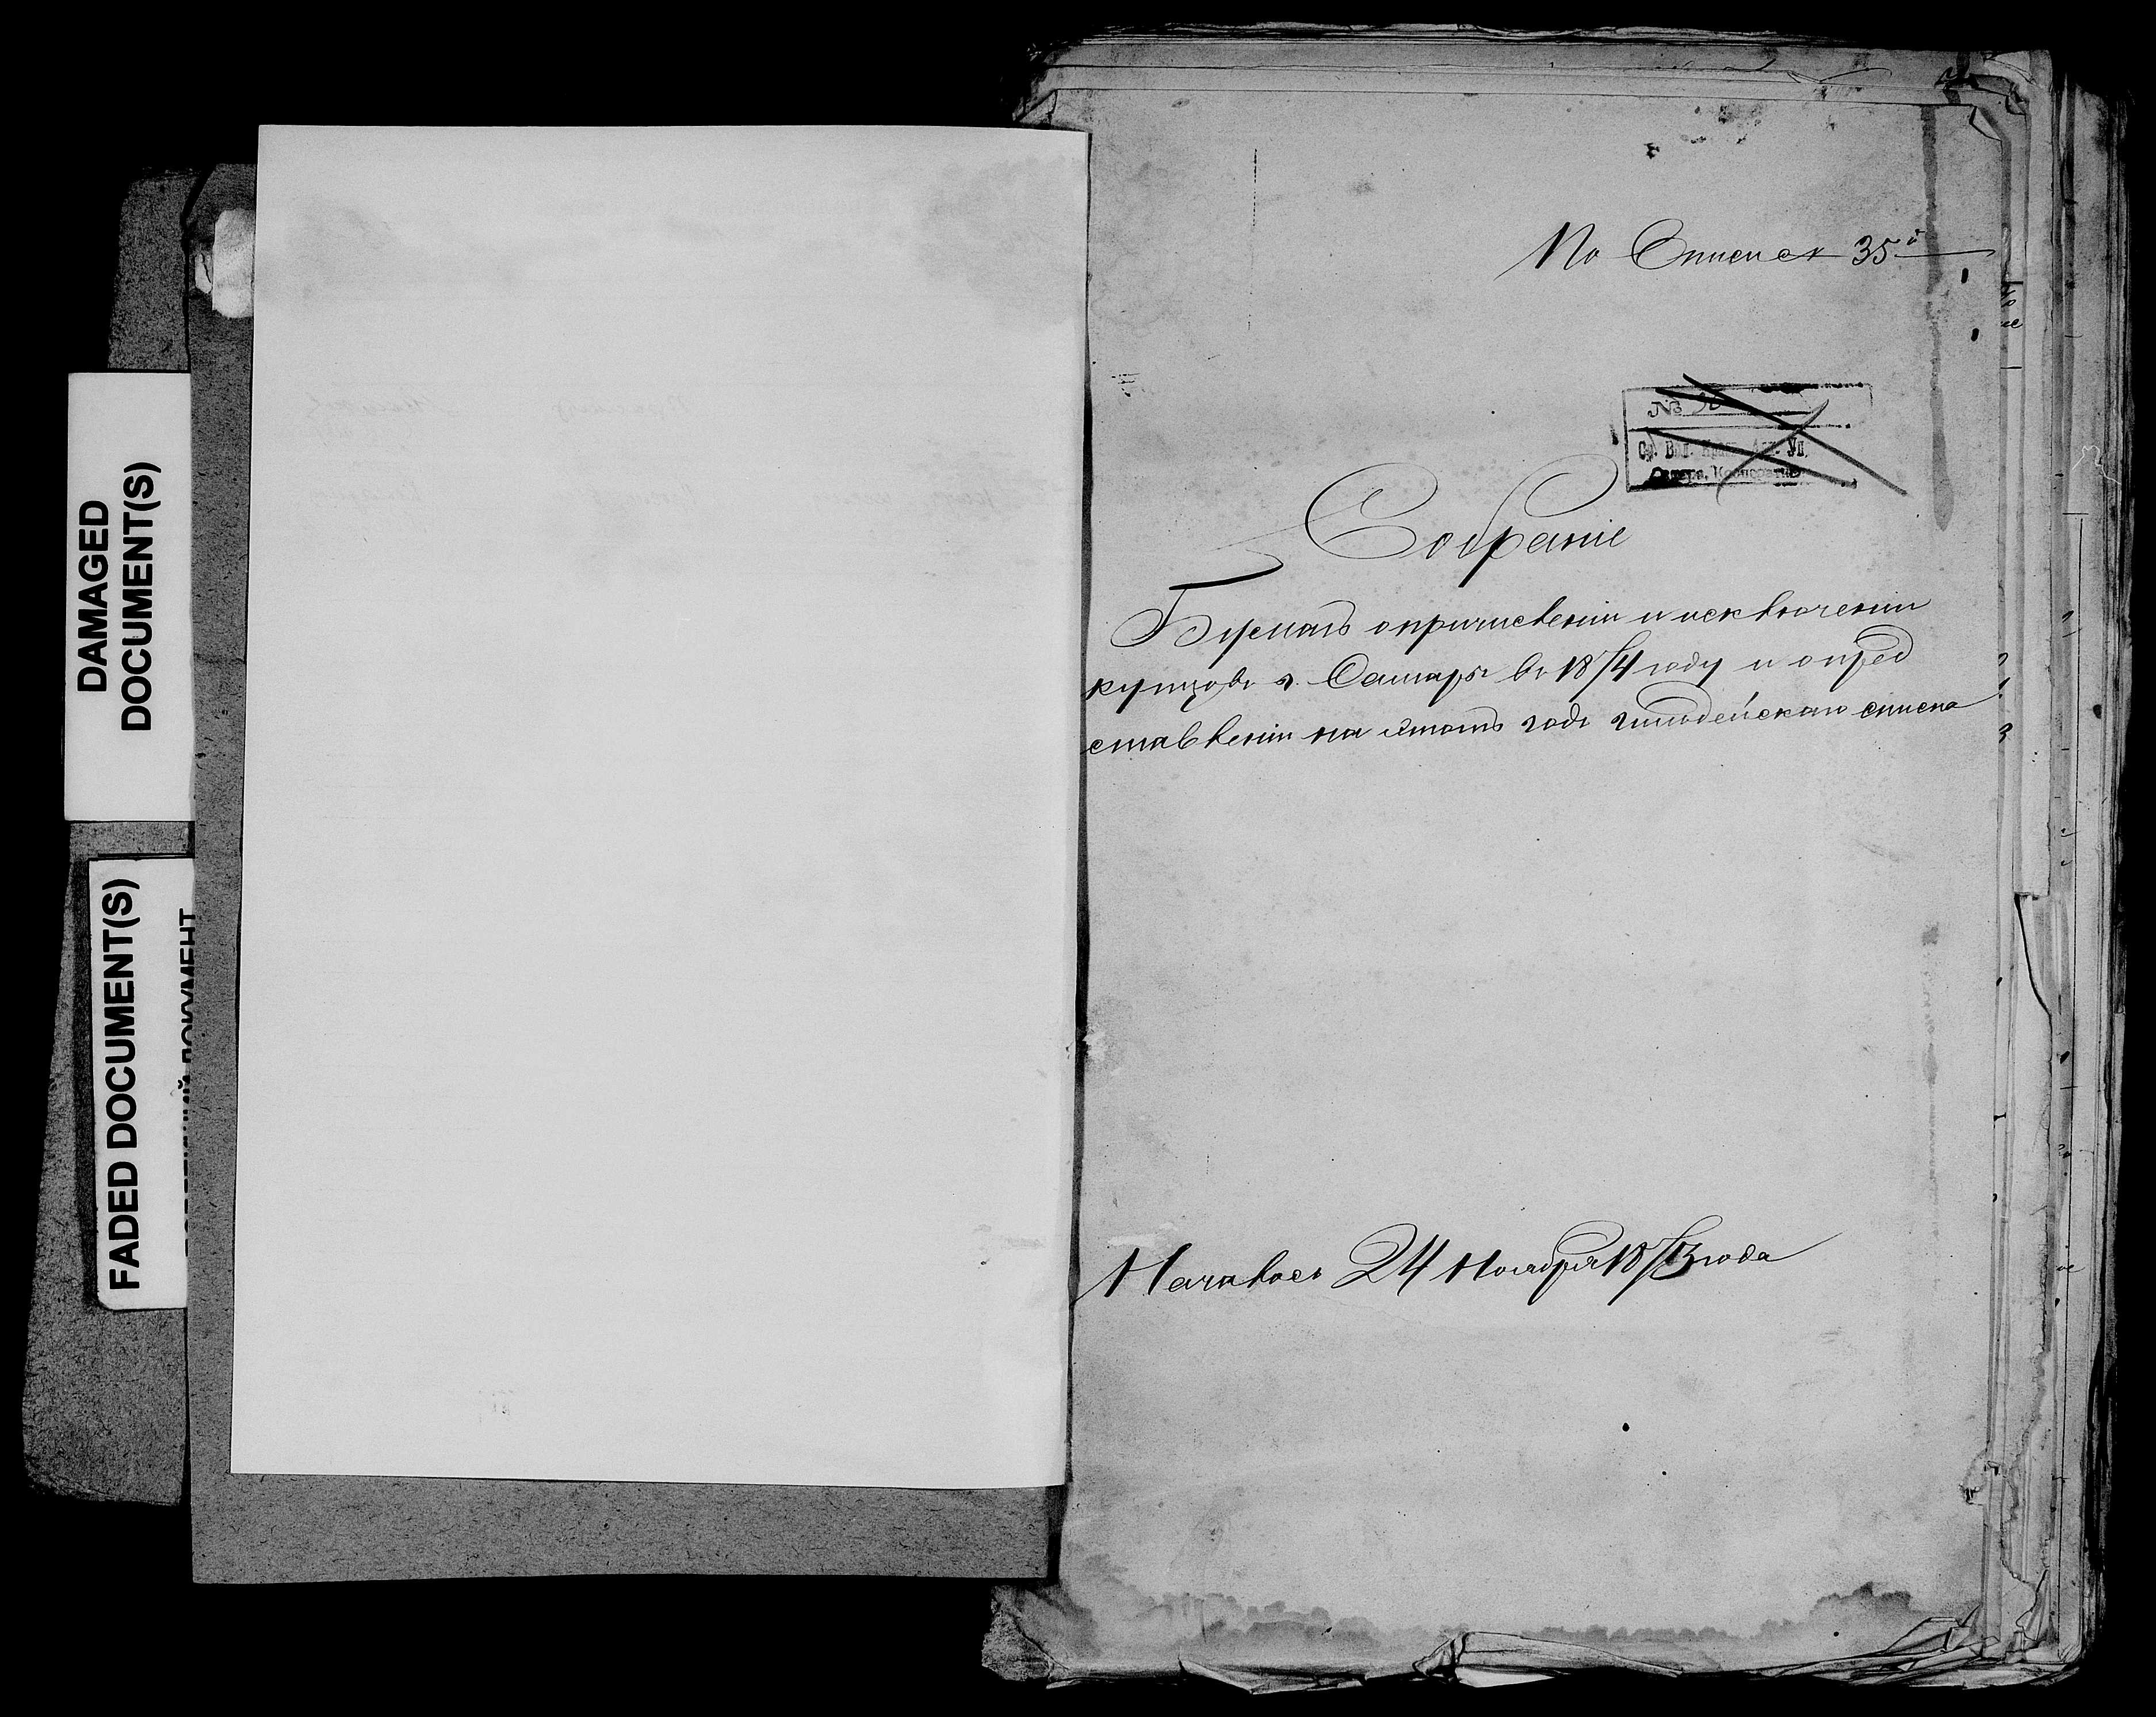 DAMAGED
DOCUMENT(S)
FADED DOCUMENT(S)
ДОКУМЕНТ
По Описи 35й
№ 30
Ср. Вол. Краев. Арх. Уп.
Собраніе
Бумагъ о причисленіи и исключеніи
купцовъ г. Самары въ 1874 году и о пред
ставленіи на этотъ годъ гильдейскаго списка
Началось 24 Ноября 1873 года